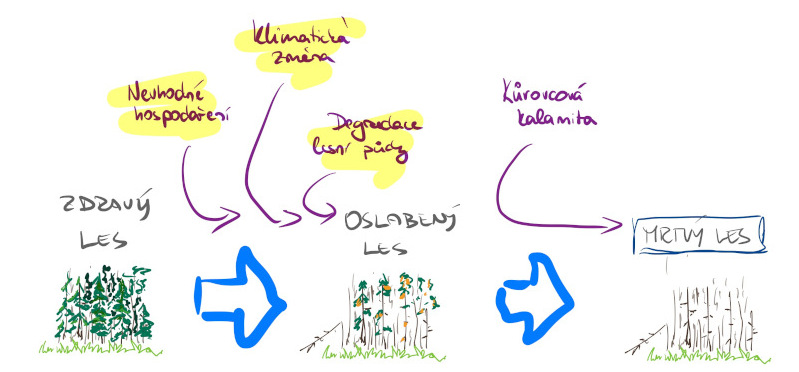 Klimatická
změna
Nevhodné
hospodaření
Degradace
lesní půdy
Kůrovcová
kalamita
ZDRAVÝ
LES
OSLABENÝ
LES
MRTVÝ LES